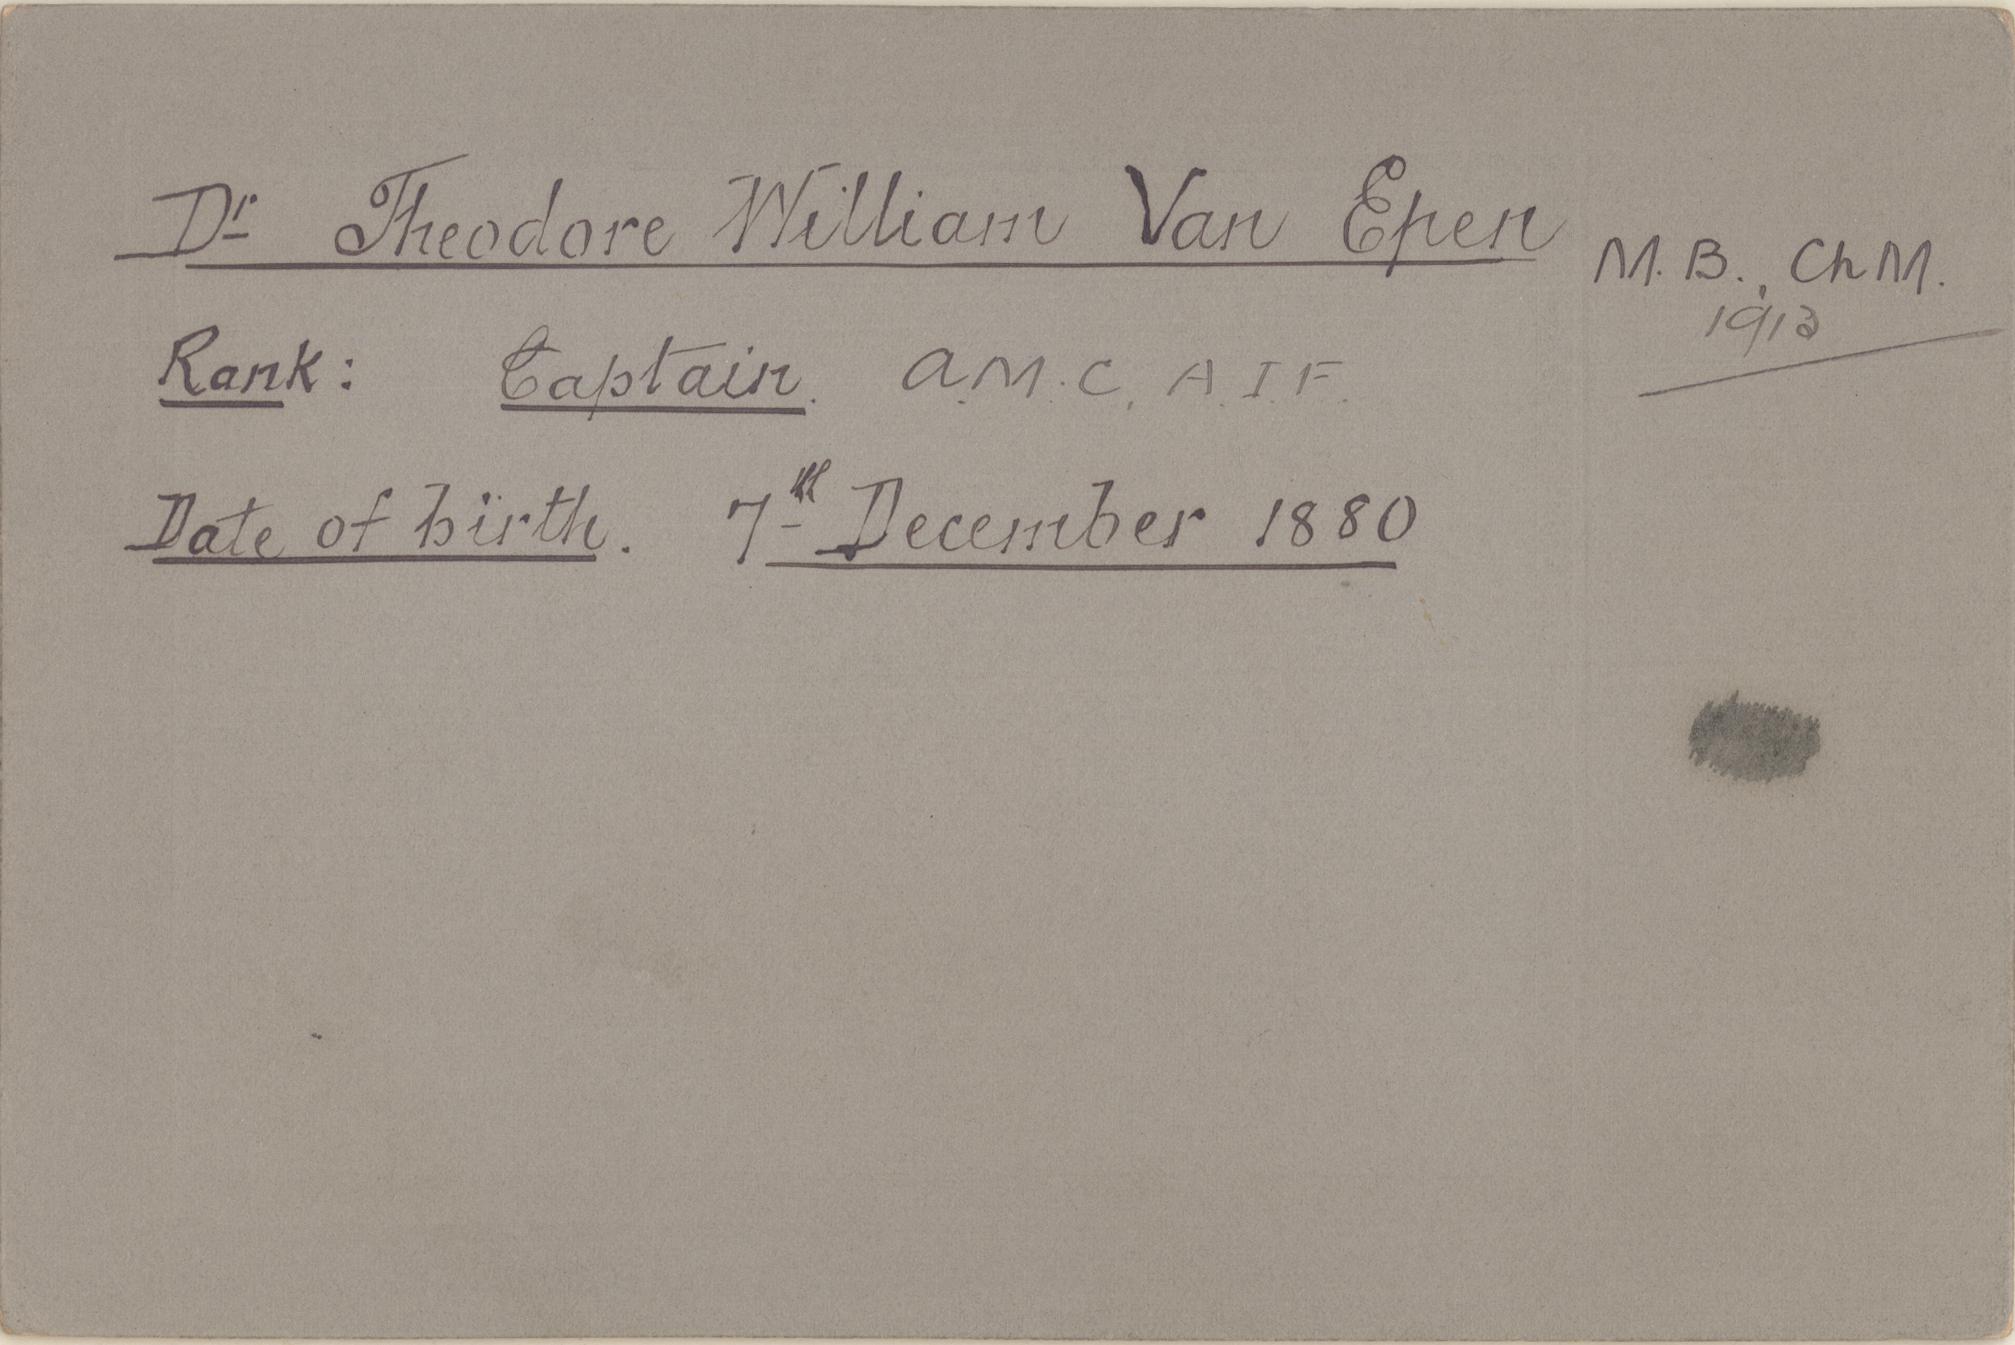 Dr Theodore William Van Epen M.B., ChM.
1913
Rank: Captain. A.M.C, A.I.F.
Date of birth. 7th December 1880